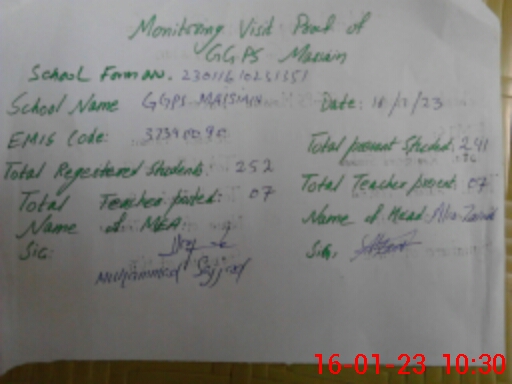 Monitoring Visit Proof of
GGPS Massain
School Form No. 23011610231351
School Name GGPS MASSAIN Date: 16/1/23
EMIS Code: 37390090 Total present Student: 241
Total Registered Students: 252 Total Teacher present: 07
Total Teacher posted: 07
Name of MEA Name of Head:
Sig: Sig.
Muhammad Sajjad
16-01-23 10:30